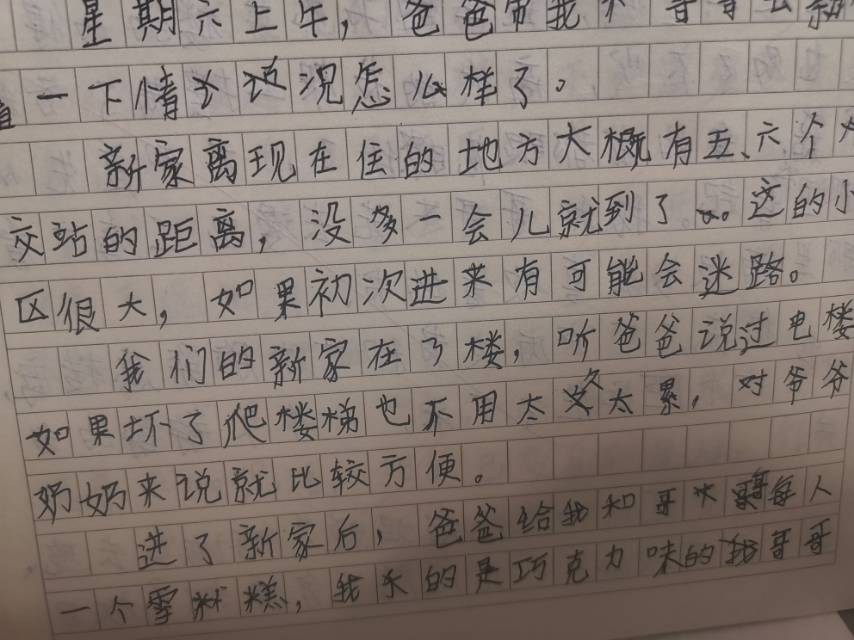 星期六上午，爸爸带我和哥哥去新
一下情况怎么样了。
新家离现在住的地方大概有五、六个
交站的距离，没多一会儿就到了。这的小
区很大，如果初次进来有可能会迷路。
我们的新家在了楼，听爸爸说过电楼
如果坏了爬楼梯也不用太久太累，对爷爷
奶奶来说就比较方便。
进了新家后，爸爸给我和哥每人
一个雪糕，我的是巧克力味的我哥哥